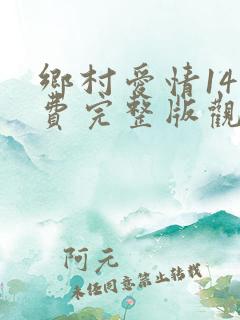 鄉村愛情14
費完整版觀
阿元
未經同意禁止轉載